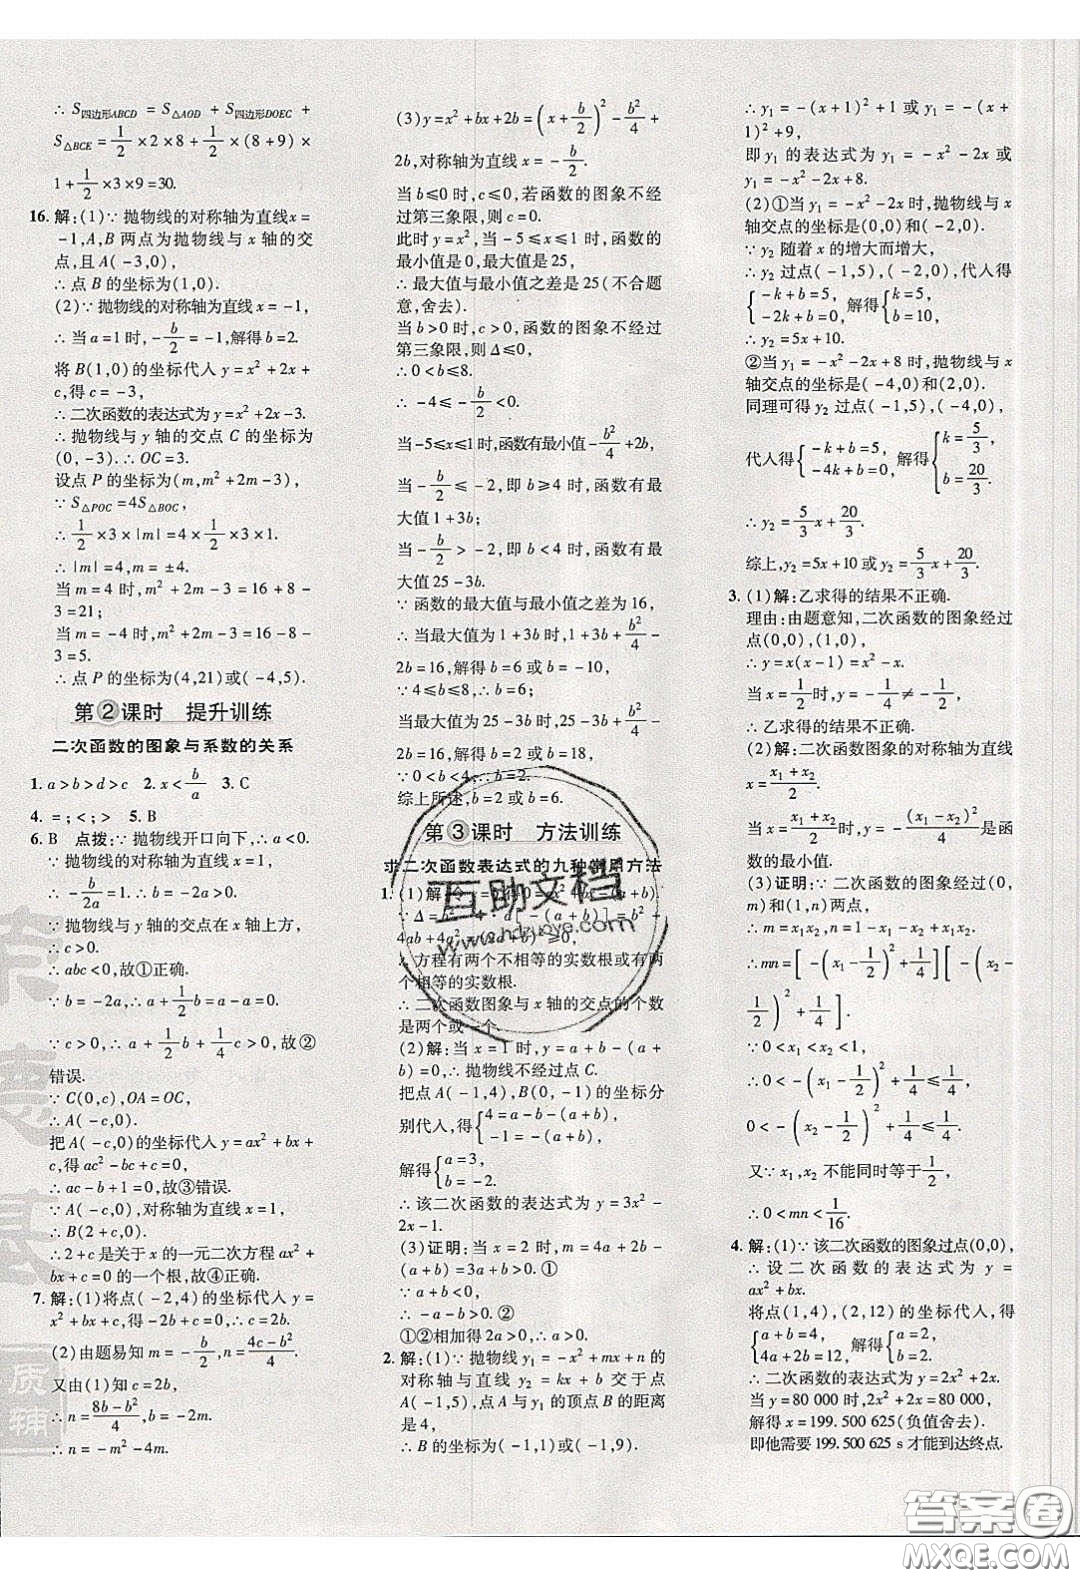 ∴ S四边形ABCD = S△AOD + S四边形DOEC +
S△BCE = 1/2 ×2×8 + 1/2 ×(8+9)×
1 + 1/2 ×3×9 = 30.
16. 解:(1)∵ 抛物线的对称轴为直线x =
-1,A,B 两点为抛物线与 x 轴的交
点,且 A(-3,0),
∴ 点 B 的坐标为(1,0).
(2)∵ 抛物线的对称轴为直线 x = -1,
∴ 当 a = 1 时, -b/2 = -1,解得 b = 2.
将 B(1,0)的坐标代入 y = x² + 2x +
c,得 c = -3,
∴ 二次函数的表达式为 y = x² + 2x - 3.
∴ 抛物线与 y 轴的交点 C 的坐标为
(0, -3). ∴ OC = 3.
设点 P 的坐标为(m,m² + 2m - 3),
∵ S△POC = 4S△BOC,
∴ 1/2 ×3×|m| = 4× 1/2 ×3×1.
∴ |m| = 4,m = ±4.
当 m = 4 时,m² + 2m - 3 = 16 + 8
- 3 = 21;
当 m = -4 时,m² + 2m - 3 = 16 - 8
- 3 = 5.
∴ 点 P 的坐标为(4,21)或(-4,5).
第②课时 提升训练
二次函数的图象与系数的关系
1. a > b > d > c 2. x < b/a 3. C
4. = ; < ; > 5. B
6. B 点拨:∵ 抛物线开口向下,∴ a < 0.
∵ -b/2a = 1,∴ b = -2a > 0.
∵ 抛物线与 y 轴的交点在 x 轴上方,
∴ c > 0.
∴ abc < 0,故①正确.
∵ b = -2a,∴ a + 1/2 b = 0.
∵ c > 0,∴ a + 1/2 b + 1/4 c > 0,故②
错误.
∵ C(0,c),OA = OC,
∴ A(-c,0).
把 A(-c,0)的坐标代入 y = ax² + bx +
c,得 ac² - bc + c = 0,
∴ ac - b + 1 = 0,故③错误.
∵ A(-c,0),对称轴为直线 x = 1,
∴ B(2 + c,0).
∴ 2 + c 是关于 x 的一元二次方程 ax² +
bx + c = 0 的一个根,故④正确.
7. 解:(1)将点(-2,4)的坐标代入 y =
x² + bx + c,得 -2b + c = 0,∴ c = 2b.
(2)由题易知 m = -b/2,n = (4c - b²)/4,
又由(1)知 c = 2b,
∴ n = (8b - b²)/4,b = -2m.
∴ n = -m² - 4m.
(3)y = x² + bx + 2b = (x + b/2)² - b²/4 +
2b,对称轴为直线 x = -b/2.
当 b ≤ 0 时,c ≤ 0,若函数的图象不经
过第三象限,则 c = 0,
此时 y = x²,当 -5 ≤ x ≤ 1 时,函数的
最小值是 0,最大值是 25,
∴ 最大值与最小值之差是 25(不合题
意,舍去).
当 b > 0 时,c > 0,函数的图象不经过
第三象限,则 Δ ≤ 0,
∴ 0 < b ≤ 8.
∴ -4 ≤ -b/2 < 0.
当 -5 ≤ x ≤ 1 时,函数有最小值 -b²/4 + 2b,
当 -b/2 ≤ -2,即 b ≥ 4 时,函数有最
大值 1 + 3b;
当 -b/2 > -2,即 b < 4 时,函数有最
大值 25 - 3b.
∵ 函数的最大值与最小值之差为 16,
∴ 当最大值为 1 + 3b 时,1 + 3b + b²/4 -
2b = 16,解得 b = 6 或 b = -10,
∵ 4 ≤ b ≤ 8,∴ b = 6.
当最大值为 25 - 3b 时,25 - 3b + b²/4 -
2b = 16,解得 b = 2 或 b = 18,
∵ 0 < b < 4,∴ b = 2.
综上所述,b = 2 或 b = 6.
第③课时 方法训练
求二次函数表达式的九种常用方法
1. (1)解:令 y = 0,得 0 = ax² + bx - (a + b).
∵ Δ = b² - 4·a[-(a + b)] = b² +
4ab + 4a² = (2a + b)² ≥ 0,
∴ 方程有两个不相等的实数根或有两
个相等的实数根.
∴ 二次函数图象与 x 轴的交点的个数
是两个或一个.
(2)解:当 x = 1 时,y = a + b - (a +
b) = 0,∴ 抛物线不经过点 C.
把点 A(-1,4),B(0,-1)的坐标分
别代入,得{4 = a - b - (a + b), -1 = -(a + b),
解得{a = 3, b = -2.
∴ 该二次函数的表达式为 y = 3x² -
2x - 1.
(3)证明:当 x = 2 时,m = 4a + 2b -
(a + b) = 3a + b > 0. ①
∵ a + b < 0,
∴ -a - b > 0. ②
①②相加得 2a > 0,∴ a > 0.
2. 解:(1)∵ 抛物线 y₁ = -x² + mx + n 的
对称轴与直线 y₂ = kx + b 交于点
A(-1,5),点 A 与 y₁ 的顶点 B 的距离
是 4,
∴ B 的坐标为(-1,1)或(-1,9).
∴ y₁ = -(x + 1)² + 1 或 y₁ = -(x +
1)² + 9,
即 y₁ 的表达式为 y₁ = -x² - 2x 或
y₁ = -x² - 2x + 8.
(2)①当 y₁ = -x² - 2x 时,抛物线与 x
轴交点的坐标是(0,0)和(-2,0).
∵ y₂ 随着 x 的增大而增大,
∴ y₂ 过点(-1,5),(-2,0),代入得
{-k + b = 5, -2k + b = 0, 解得{k = 5, b = 10.
∴ y₂ = 5x + 10.
②当 y₁ = -x² - 2x + 8 时,抛物线与 x
轴交点的坐标是(-4,0)和(2,0).
同理可得 y₂ 过点(-1,5),(-4,0),
代入得{-k + b = 5, -4k + b = 0, 解得{k = 5/3, b = 20/3.
∴ y₂ = 5/3 x + 20/3.
综上,y₂ = 5x + 10 或 y₂ = 5/3 x + 20/3.
3. (1)解:乙求得的结果不正确.
理由:由题意知,二次函数的图象经过
点(0,0),(1,0),
∴ y = x(x - 1) = x² - x.
当 x = 1/2 时,y = -1/4 ≠ -1/2,
∴ 乙求得的结果不正确.
(2)解:二次函数图象的对称轴为直线
x = (x₁ + x₂)/2.
当 x = (x₁ + x₂)/2 时,函数有最小值,为
-(x₁ - x₂)²/4.
(3)证明:∵ 二次函数的图象经过(0,
m)和(1,n)两点,
∴ m = x₁x₂,n = 1 - x₁ - x₂ + x₁x₂.
∴ mn = [-(x₁ - 1/2)² + 1/4][-(x₂ -
1/2)² + 1/4].
∵ 0 < x₁ < x₂ < 1,
∴ 0 < -(x₁ - 1/2)² + 1/4 ≤ 1/4,
0 < -(x₂ - 1/2)² + 1/4 ≤ 1/4.
又∵ x₁,x₂ 不能同时等于 1/2,
∴ 0 < mn < 1/16.
4. 解:(1)∵ 该二次函数的图象过点(0,0),
∴ 设二次函数的表达式为 y =
ax² + bx.
将点(1,4),(2,12)的坐标代入,得
{a + b = 4, 4a + 2b = 12, 解得{a = 2, b = 2.
∴ 二次函数的表达式为 y = 2x² + 2x.
当 y = 80 000 时,2x² + 2x = 80 000,
解得 x = 199.500 625(负值舍去).
即他需要 199.500 625 s 才能到达终点.
互助文档
www.hdzuoye.com
质
辅
答案卷
MXQE.COM